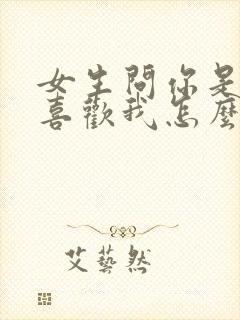 女生問你是
喜歡我怎麼
艾藝然